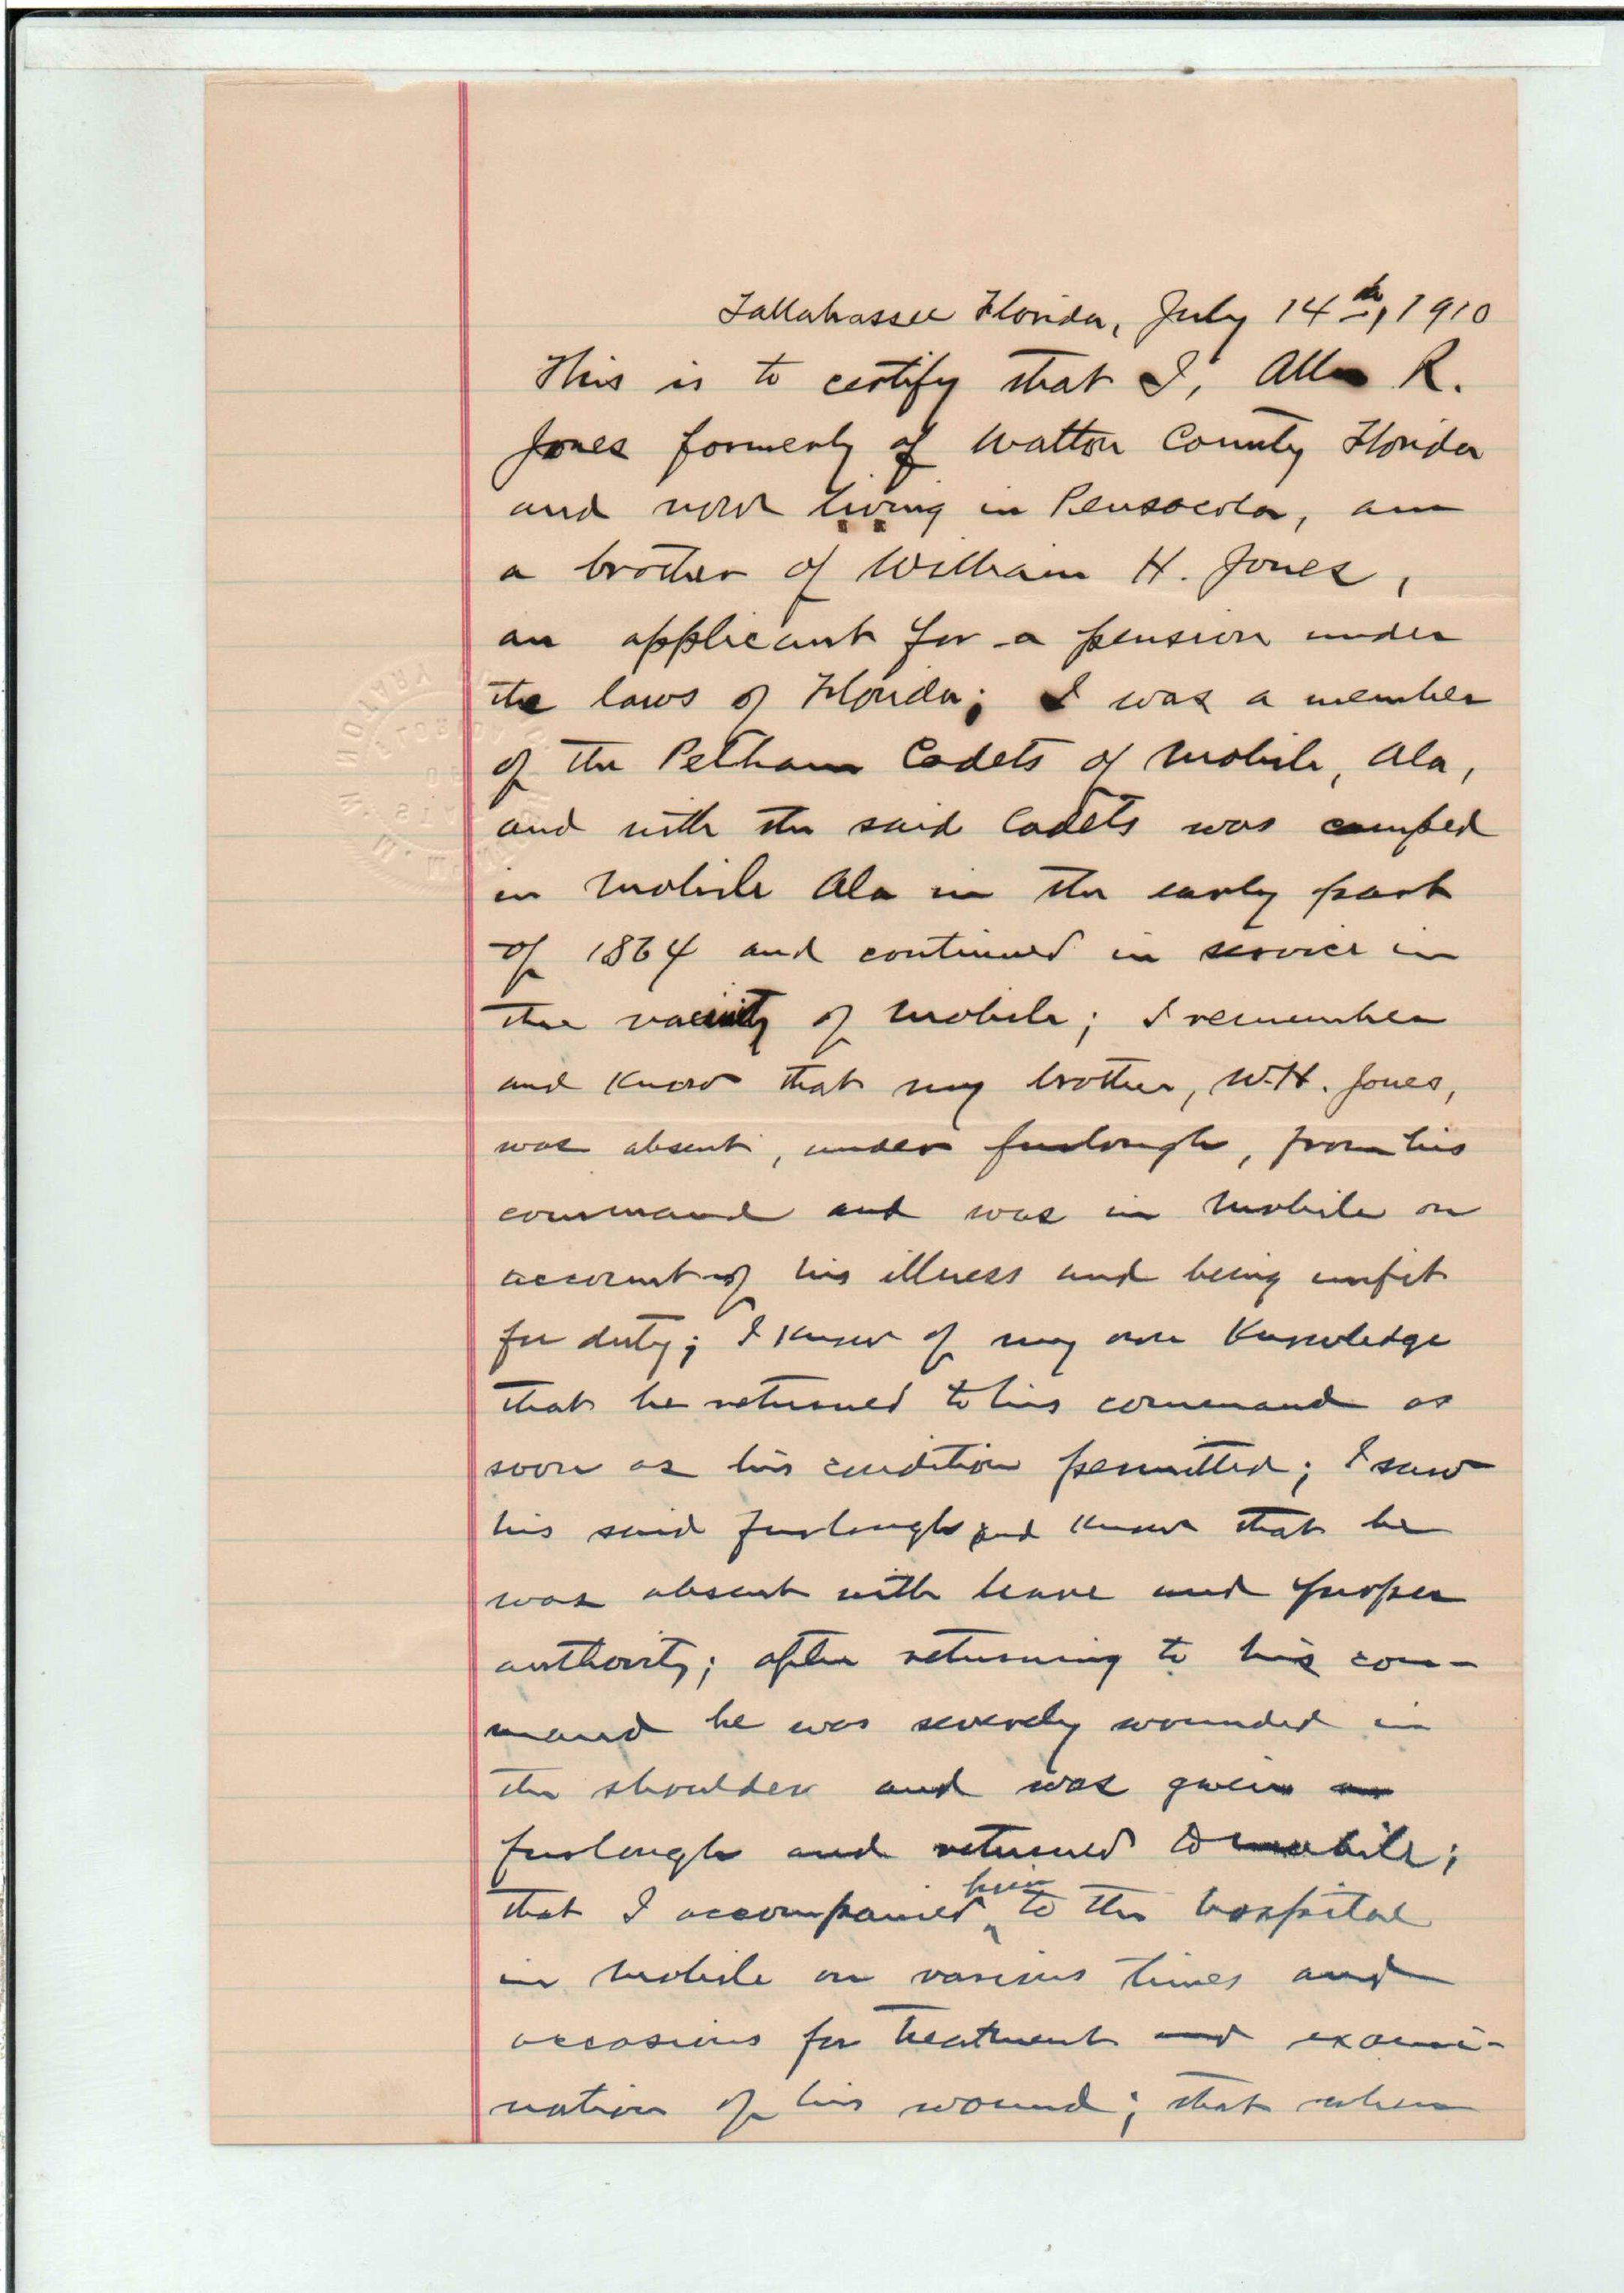 Tallahassee Florida, July 14th, 1910
This is to certify that I, Allen R.
Jones formerly of Walton County Florida
and now living in Pensacola, am
a brother of William H. Jones,
an applicant for a pension under
the laws of Florida; I was a member
of the Pelham Cadets of Mobile, Ala,
and with the said Cadets was camped
in Mobile Ala in the early part
of 1864 and continued in service in
the vacinity of Mobile; I remember
and know that my brother, W.H. Jones,
was absent, under furlough, from his
command and was in Mobile on
account of his illness and being unfit
for duty; I know of my own knowledge
that he returned to his command as
soon as his condition permitted; I saw
his said furlough and know that he
was absent with leave and proper
authority; after returning to his com-
mand he was severely wounded in
the shoulder and was given
furlough and returned to Mobile;
that I accompanied him to the hospital
in Mobile on various times and
occasions for treatment and exami-
nation of his wound; that when